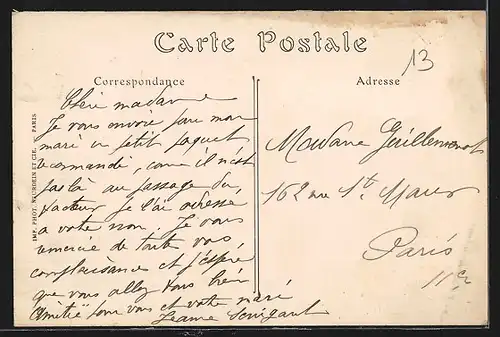 Carte Postale
13
Correspondance
Adresse
Chère madame
Je vous envoie pour mon
mari un petit paquet
recommandé, comme il n'est
pas là au passage du
facteur je l'ai adressé
a votre nom. Je vous
remercie de toutes vos
complaisances et j'espère
que vous allez tous bien
Amitié pour vous et votre mari
Jeanne
Madame Guillemenot
162 rue St. Maur
Paris
11e
IMP. PHOT. NEURDEIN ET CIE. PARIS